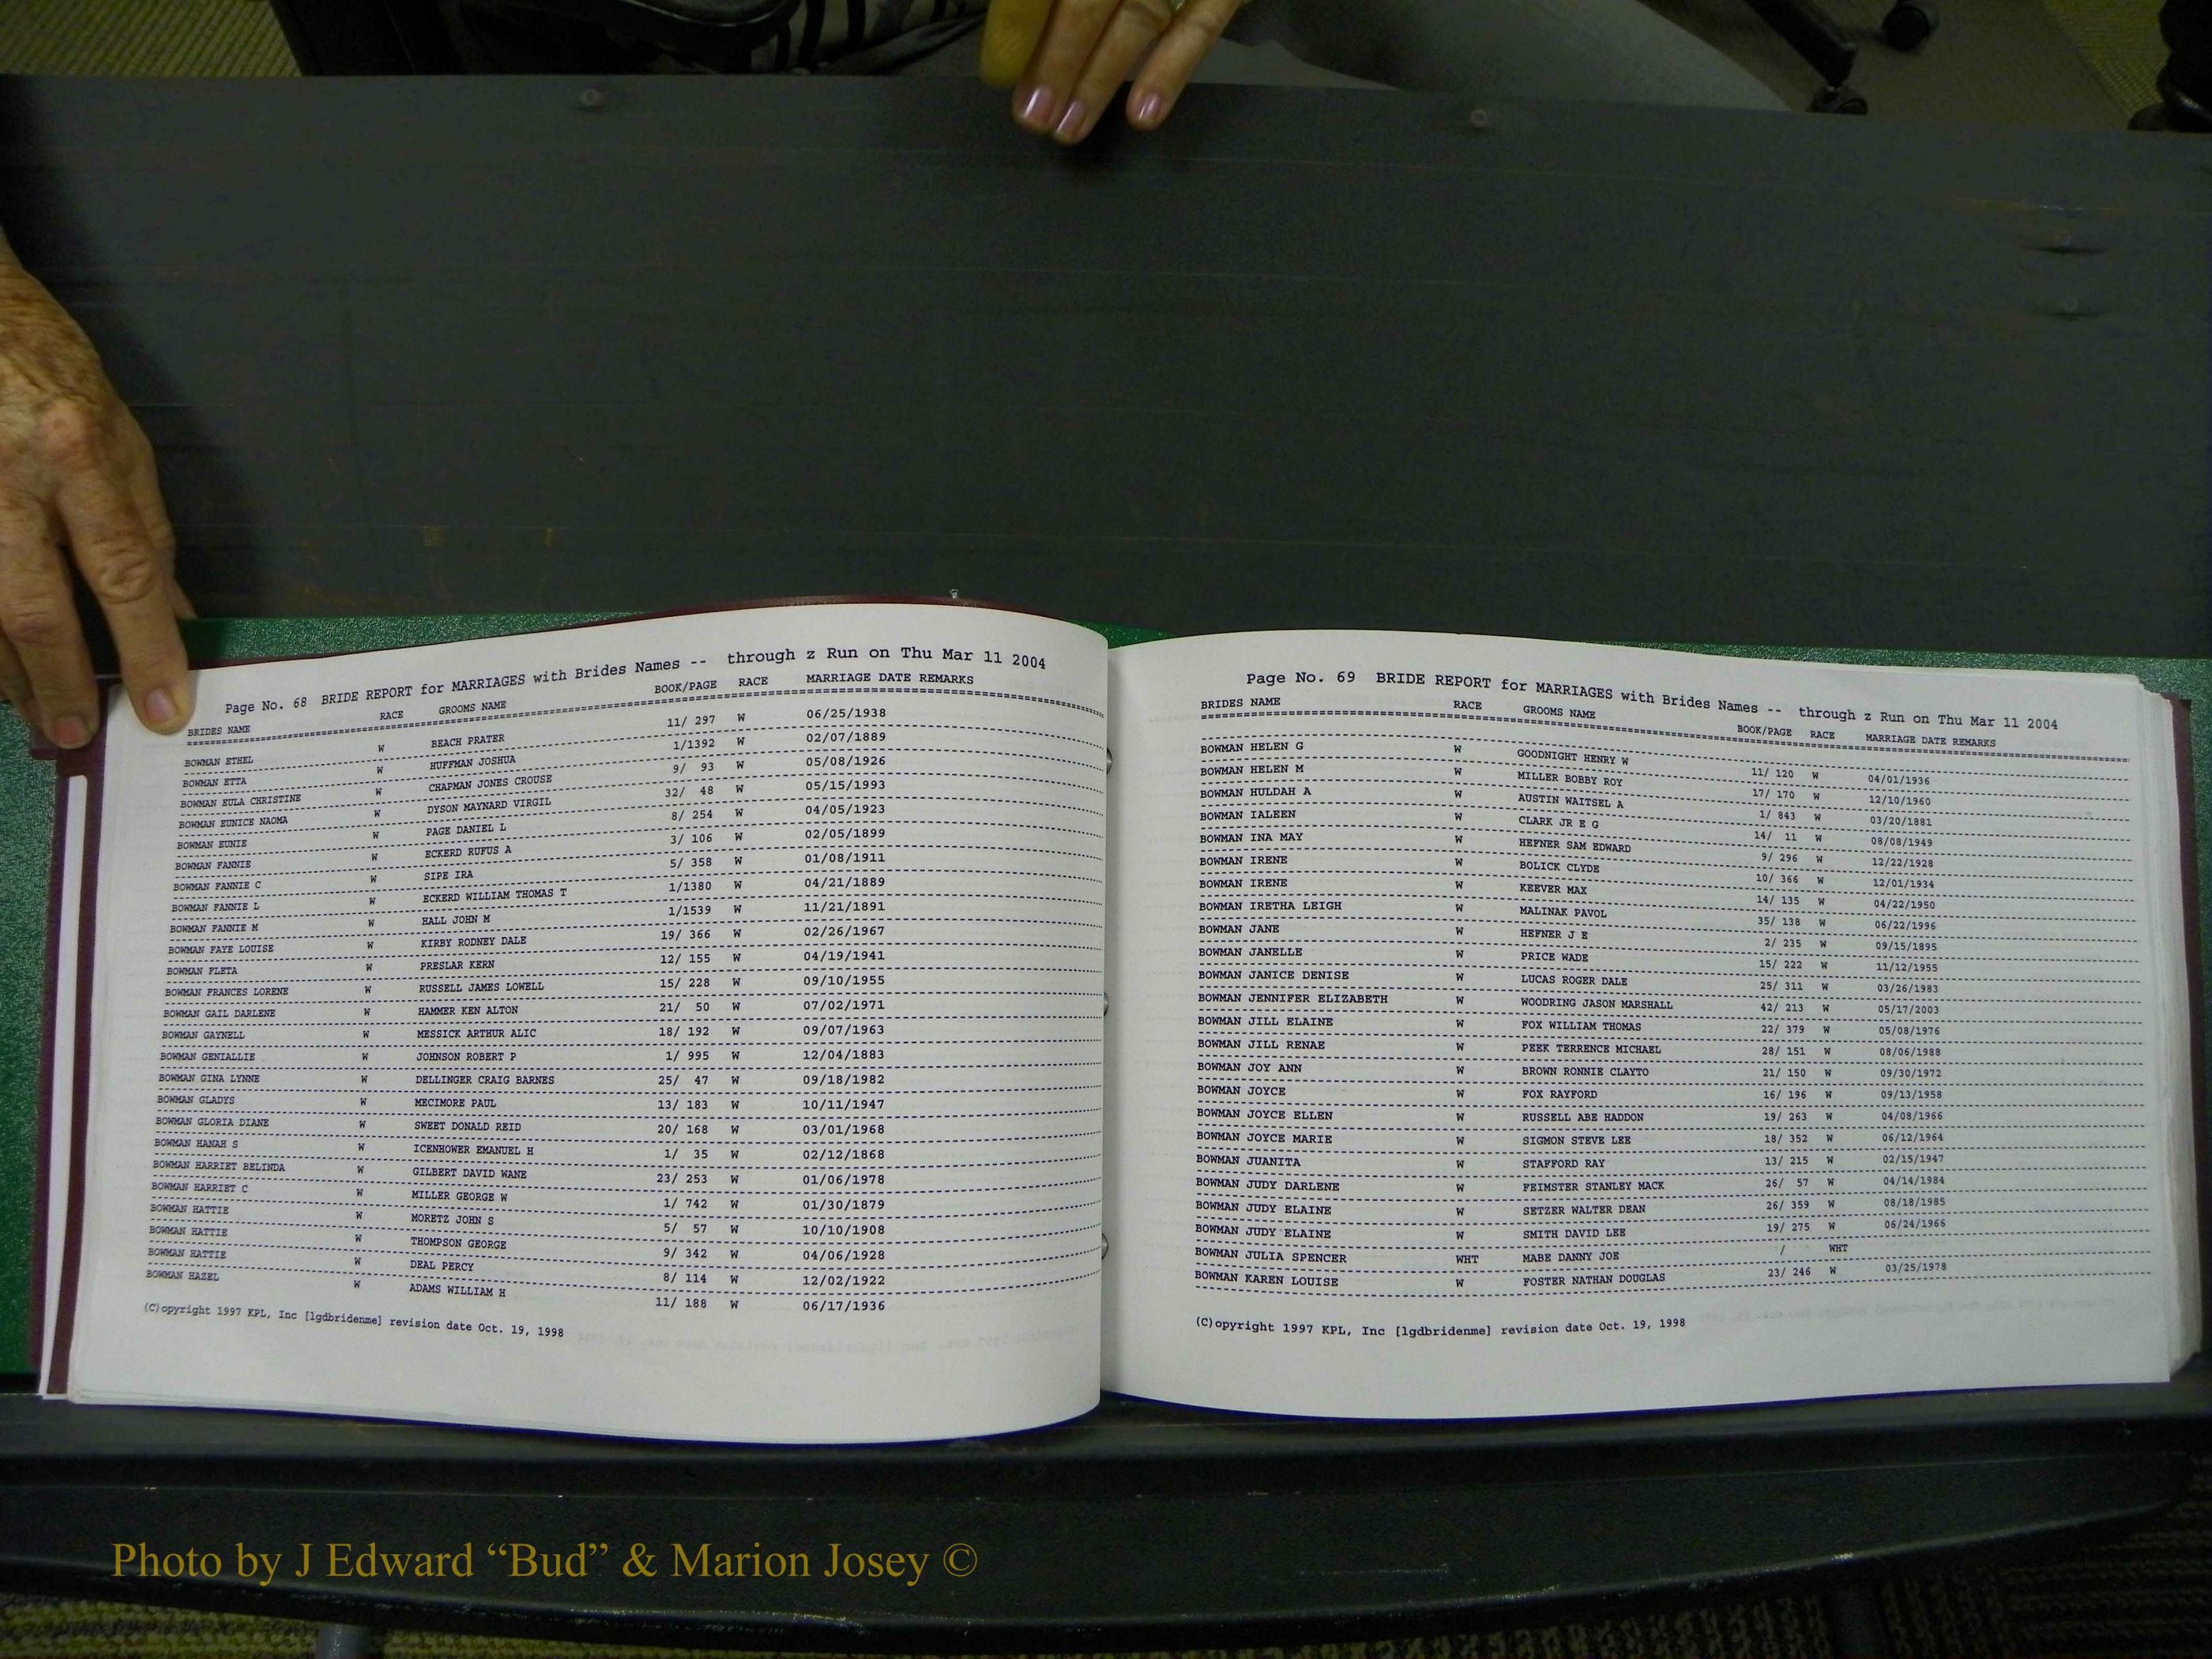 Page No. 68 BRIDE REPORT for MARRIAGES with Brides Names -- through z Run on Thu Mar 11 2004
BRIDES NAME RACE GROOMS NAME BOOK/PAGE RACE MARRIAGE DATE REMARKS
BOWMAN ETHEL W BEACH PRATER 11/ 297 W 06/25/1938
BOWMAN ETTA W HUFFMAN JOSHUA 1/1392 W 02/07/1889
BOWMAN EULA CHRISTINE W CHAPMAN JONES CROUSE 9/ 93 W 05/08/1926
BOWMAN EUNICE NAOMA W DYSON MAYNARD VIRGIL 32/ 48 W 05/15/1993
BOWMAN EUNIE W PAGE DANIEL L 8/ 254 W 04/05/1923
BOWMAN FANNIE W ECKERD RUFUS A 3/ 106 W 02/05/1899
BOWMAN FANNIE C W SIPE IRA 5/ 358 W 01/08/1911
BOWMAN FANNIE L W ECKERD WILLIAM THOMAS T 1/1380 W 04/21/1889
BOWMAN FANNIE M W HALL JOHN M 1/1539 W 11/21/1891
BOWMAN FAYE LOUISE W KIRBY RODNEY DALE 19/ 366 W 02/26/1967
BOWMAN FLETA W PRESLAR KERN 12/ 155 W 04/19/1941
BOWMAN FRANCES LORENE W RUSSELL JAMES LOWELL 15/ 228 W 09/10/1955
BOWMAN GAIL DARLENE W HAMMER KEN ALTON 21/ 50 W 07/02/1971
BOWMAN GAYNELL W MESSICK ARTHUR ALIC 18/ 192 W 09/07/1963
BOWMAN GENIALLIE W JOHNSON ROBERT P 1/ 995 W 12/04/1883
BOWMAN GINA LYNNE W DELLINGER CRAIG BARNES 25/ 47 W 09/18/1982
BOWMAN GLADYS W MECIMORE PAUL 13/ 183 W 10/11/1947
BOWMAN GLORIA DIANE W SWEET DONALD REID 20/ 168 W 03/01/1968
BOWMAN HANAH S W ICENHOWER EMANUEL H 1/ 35 W 02/12/1868
BOWMAN HARRIET BELINDA W GILBERT DAVID WANE 23/ 253 W 01/06/1978
BOWMAN HARRIET C W MILLER GEORGE W 1/ 742 W 01/30/1879
BOWMAN HATTIE W MORETZ JOHN S 5/ 57 W 10/10/1908
BOWMAN HATTIE W THOMPSON GEORGE 9/ 342 W 04/06/1928
BOWMAN HATTIE W DEAL PERCY 8/ 114 W 12/02/1922
BOWMAN HAZEL W ADAMS WILLIAM H 11/ 188 W 06/17/1936
(C)opyright 1997 KPL, Inc [lgdbridenme] revision date Oct. 19, 1998
Page No. 69 BRIDE REPORT for MARRIAGES with Brides Names -- through z Run on Thu Mar 11 2004
BRIDES NAME RACE GROOMS NAME BOOK/PAGE RACE MARRIAGE DATE REMARKS
BOWMAN HELEN G W GOODNIGHT HENRY W 11/ 120 W 04/01/1936
BOWMAN HELEN M W MILLER BOBBY ROY 17/ 170 W 12/10/1960
BOWMAN HULDAH A W AUSTIN WAITSEL A 1/ 843 W 03/20/1881
BOWMAN IALEEN W CLARK JR E G 14/ 11 W 08/08/1949
BOWMAN INA MAY W HEFNER SAM EDWARD 9/ 296 W 12/22/1928
BOWMAN IRENE W BOLICK CLYDE 10/ 366 W 12/01/1934
BOWMAN IRENE W KEEVER MAX 14/ 135 W 04/22/1950
BOWMAN IRETHA LEIGH W MALINAK PAVOL 35/ 138 W 06/22/1996
BOWMAN JANE W HEFNER J E 2/ 235 W 09/15/1895
BOWMAN JANELLE W PRICE WADE 15/ 222 W 11/12/1955
BOWMAN JANICE DENISE W LUCAS ROGER DALE 25/ 311 W 03/26/1983
BOWMAN JENNIFER ELIZABETH W WOODRING JASON MARSHALL 42/ 213 W 05/17/2003
BOWMAN JILL ELAINE W FOX WILLIAM THOMAS 22/ 379 W 05/08/1976
BOWMAN JILL RENAE W PEEK TERRENCE MICHAEL 28/ 151 W 08/06/1988
BOWMAN JOY ANN W BROWN RONNIE CLAYTO 21/ 150 W 09/30/1972
BOWMAN JOYCE W FOX RAYFORD 16/ 196 W 09/13/1958
BOWMAN JOYCE ELLEN W RUSSELL ABE HADDON 19/ 263 W 04/08/1966
BOWMAN JOYCE MARIE W SIGMON STEVE LEE 18/ 352 W 06/12/1964
BOWMAN JUANITA W STAFFORD RAY 13/ 215 W 02/15/1947
BOWMAN JUDY DARLENE W FEIMSTER STANLEY MACK 26/ 57 W 04/14/1984
BOWMAN JUDY ELAINE W SETZER WALTER DEAN 26/ 359 W 08/18/1985
BOWMAN JUDY ELAINE W SMITH DAVID LEE 19/ 275 W 06/24/1966
BOWMAN JULIA SPENCER WHT MABE DANNY JOE / WHT
BOWMAN KAREN LOUISE W FOSTER NATHAN DOUGLAS 23/ 246 W 03/25/1978
(C)opyright 1997 KPL, Inc [lgdbridenme] revision date Oct. 19, 1998
Photo by J Edward “Bud” & Marion Josey ©